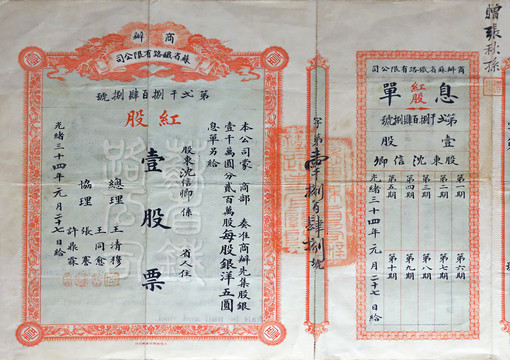 商辦
蘇省鐵路有限公司
第弌千捌百肆捌號
紅股
本公司蒙 商部 奏准商辦先集股銀
壹千萬圓分貳百萬股每股銀洋五圓
息單另給
股東沈信卿係 省人住
壹股票
總理 王清穆
協理 王同愈
張謇
許鼎霖
光緒三十四年元月二十七日給
字第壹千捌百肆捌號
商辦蘇省鐵路有限公司
紅股
息單
第弌千捌百肆捌號
壹股
股東沈信卿
第一期 第六期
第二期 第七期
第三期 第八期
第四期 第九期
第五期 第十期
光緒三十四年元月二十七日給